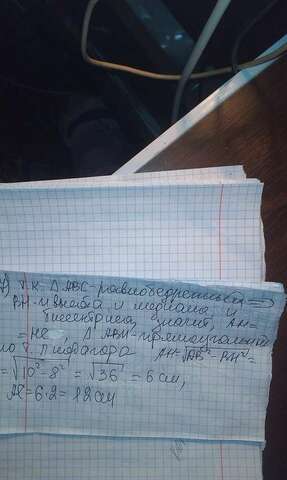 т.к. △ABC - равнобедренный =>
BH - высота и медиана и
биссектриса, значит, AH=
= HC, △ABH - прямоугольный
по т. Пифагора AH=√AB²-BH²=
=√10²-8² = √36 = 6 см,
AC = 6·2 = 12 см